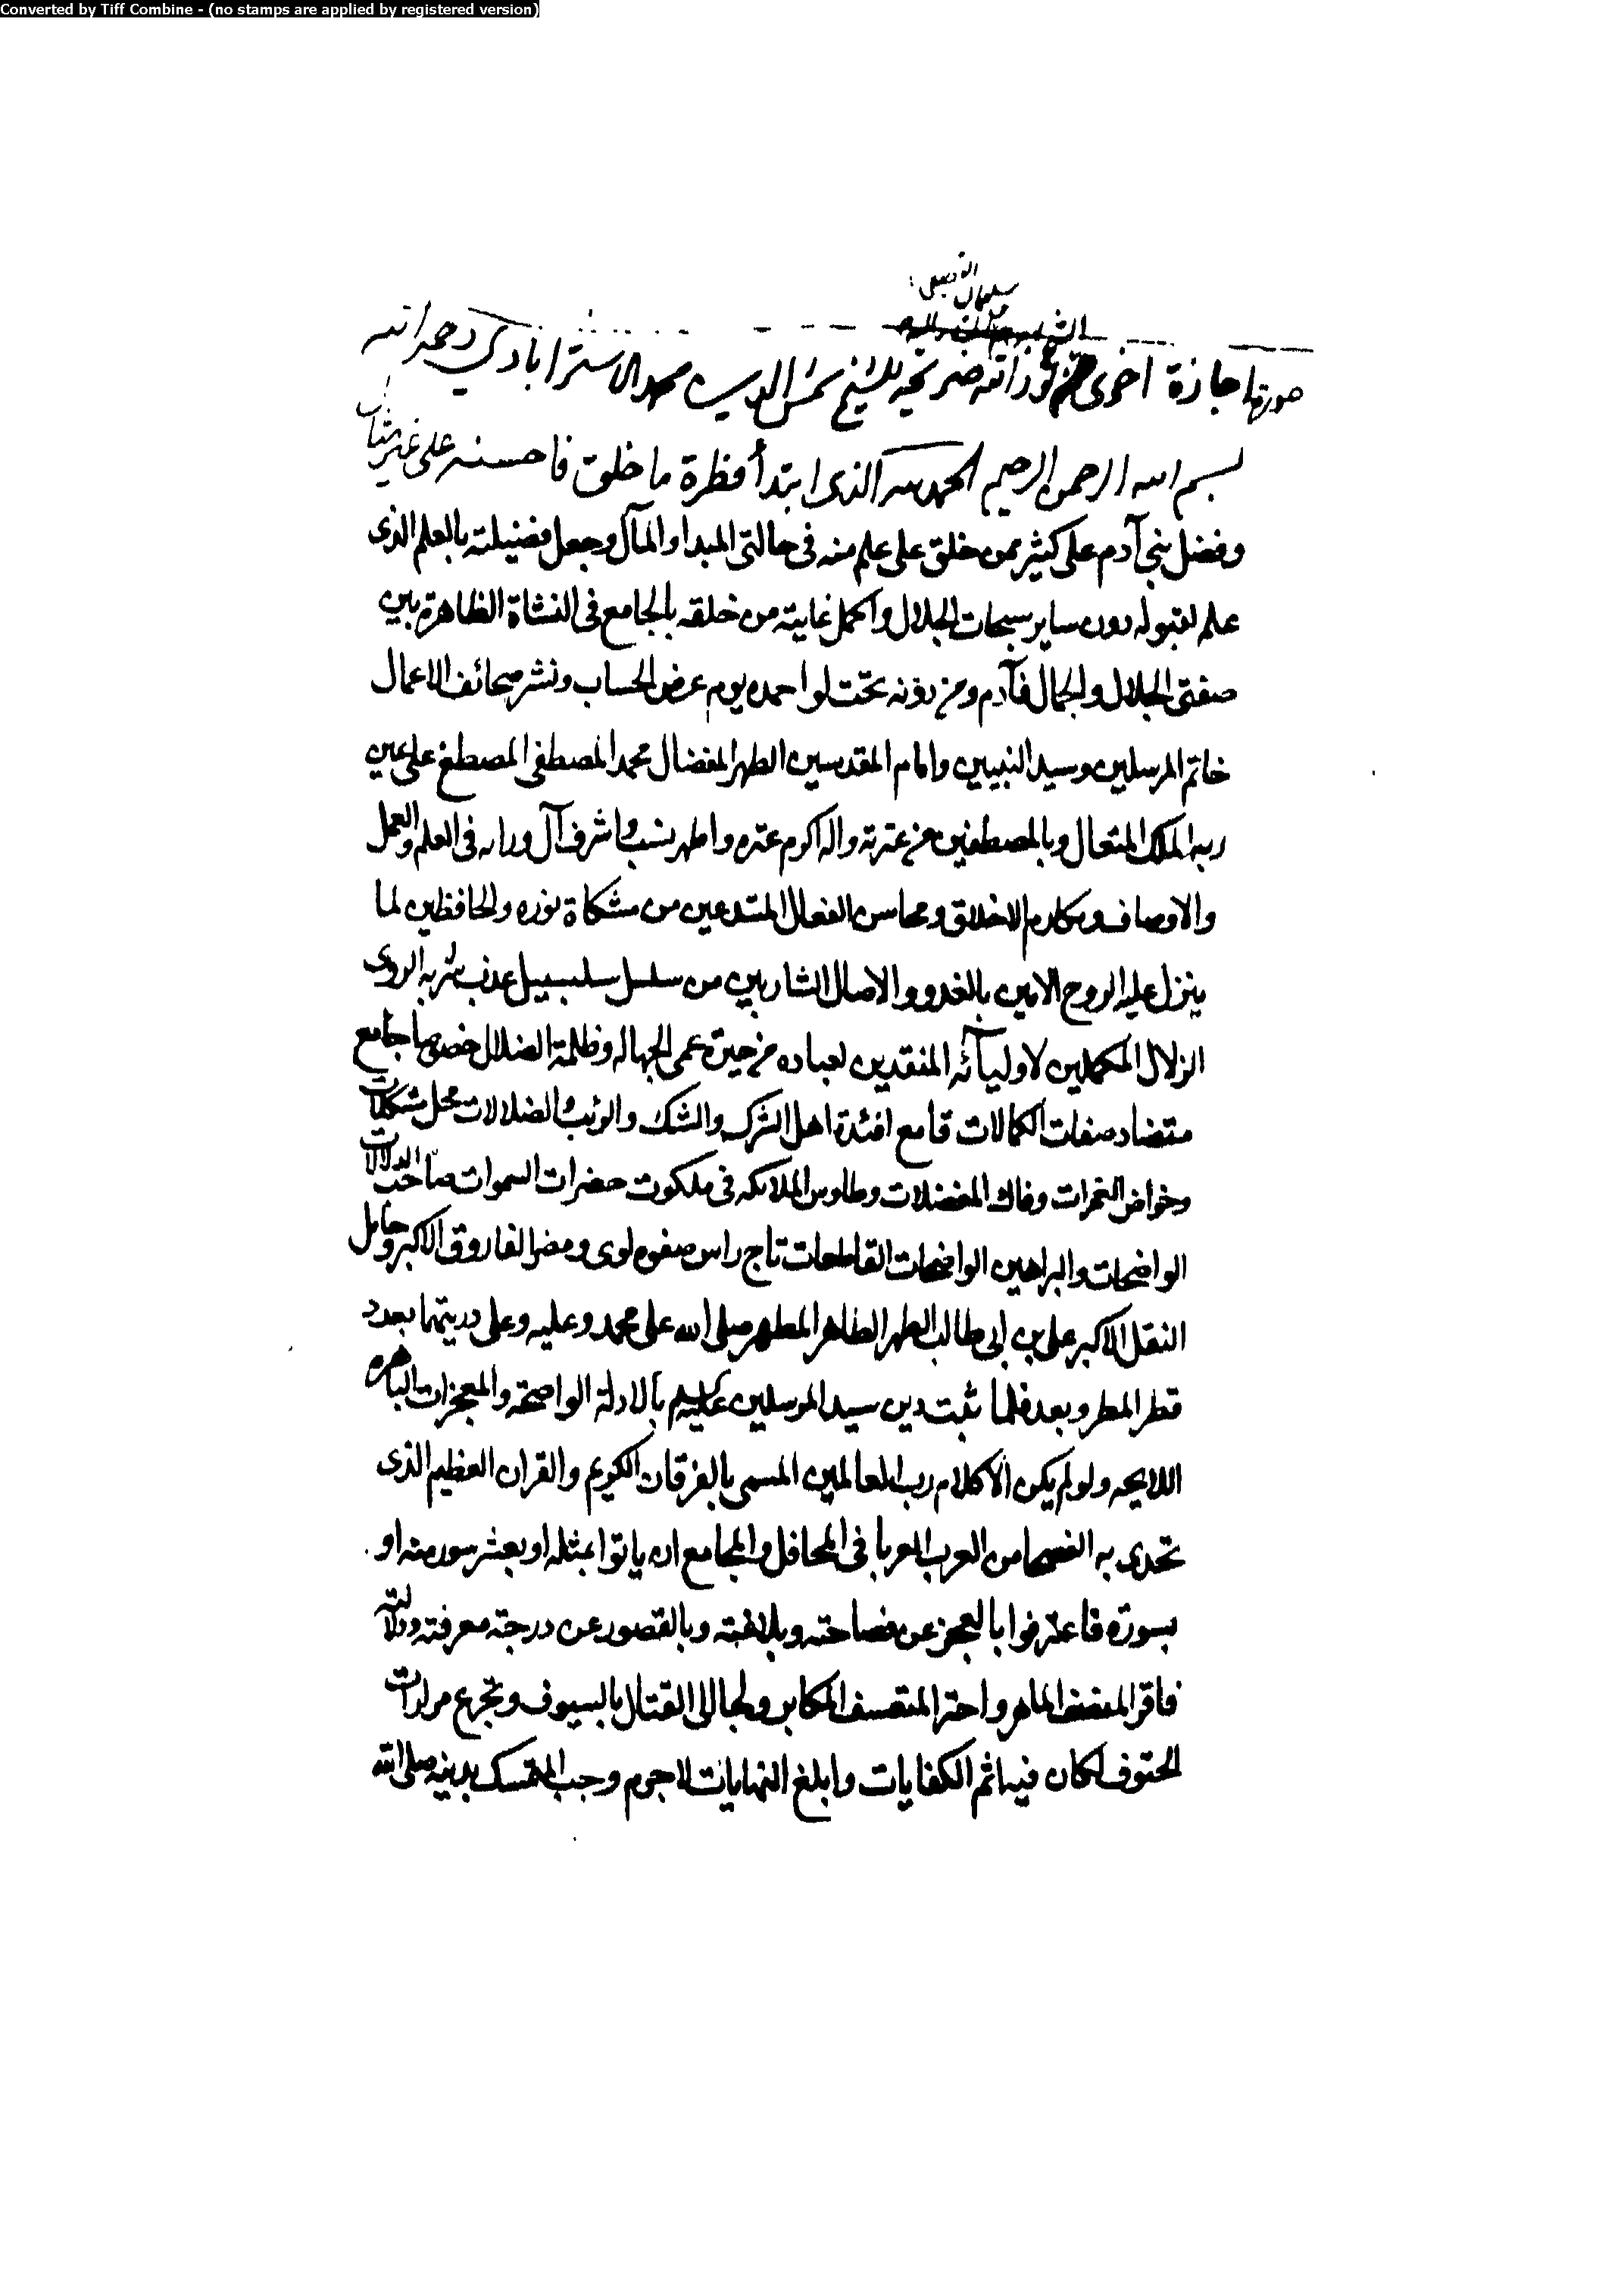 Converted by Tiff Combine - (no stamps are applied by registered version)
سليمان القطيفي
صورة اجازة اخرى نور الله ضريحه للشيخ شمس الدين محمد الاسترابادي رحمه الله
بسم الله الرحمن الرحيم الحمد لله الذى ابتدأ فطرة ما خلق فاحسنه على غير مثال
وفضل بنى آدم على كثير ممن خلق على علم منه فى حالتى المبدا والمآل وجعل فضيلته بالعلم الذى
علم لقبوله دون ساير سبحات الجلال واكمل غايته من خلقه بالجامع فى النشاة الظاهرة بين
صفتى الجلال والجمال فآدم ومن دونه تحت لوا حمده يوم عرض الحساب ونشر صحائف الاعمال
خاتم المرسلين وسيد النبيين وامام المقدسين الطهر المفضال محمد المصطفى المصطنع على عين
ربه الملك المتعال وبالمصطفين من عترته واله اكرم عتره واطهر نسب واشرف آل وراه فى العلم والعمل
والاوصاف ومكارم الاخلاق ومحاسن الفعال المبتدعين من مشكاة نوره والحافظين لما
ينزل عليه الروح الامين بالغدو والاصال الشاربين من سلسل سلسبيل عذب شربه الروى
الزلال المكملين لاوليآئه المنقدين لعباده من حيرة عمى الجهاله وظلمة الضلال خصوصا جامع
متضاد صفات الكمالات قامع افئدة اهل الشرك والشك والريب والضلالات محل مشكلات
وخواض الغمرات وفاك المعضلات وطاوس الملائكه فى ملكوت حضرات السموات صاحب الدلالات
الواضحات والبراهين الواضحات القاطعات تاج راس صفوه لوى ومضر الفاروق الاكبر وحامل
الثقل الاكبر على بن ابى طالب الطهر الطاهر المطهر صلى الله على محمد وعليه وعلى دريتهما بعدد
قطر المطر وبعد فلما ثبت دين سيد المرسلين عليه السلم بالادلة الواضحة والمعجزات الباهره
اللايحه ولو لم يكن الا كلام رب العالمين المسمى بالفرقان الكريم والقران العظيم الذى
تحدى به الفصحا من العرب العربا فى المحافل والمجامع ان ياتوا بمثله او بعشر سور منه او
بسورة فاعترفوا بالعجز عن فصاحته وبلاغته وبالقصور عن درجة معرفته ودلالته
فاقر المنصف الماهر واحترا المتعسف المكابر ولجا الى القتال بالسيوف وتجرع مرارات
الحتوف لكان فيه اتم الكفايات وابلغ النهايات لا جرم وجب التمسك بدينه صلى الله